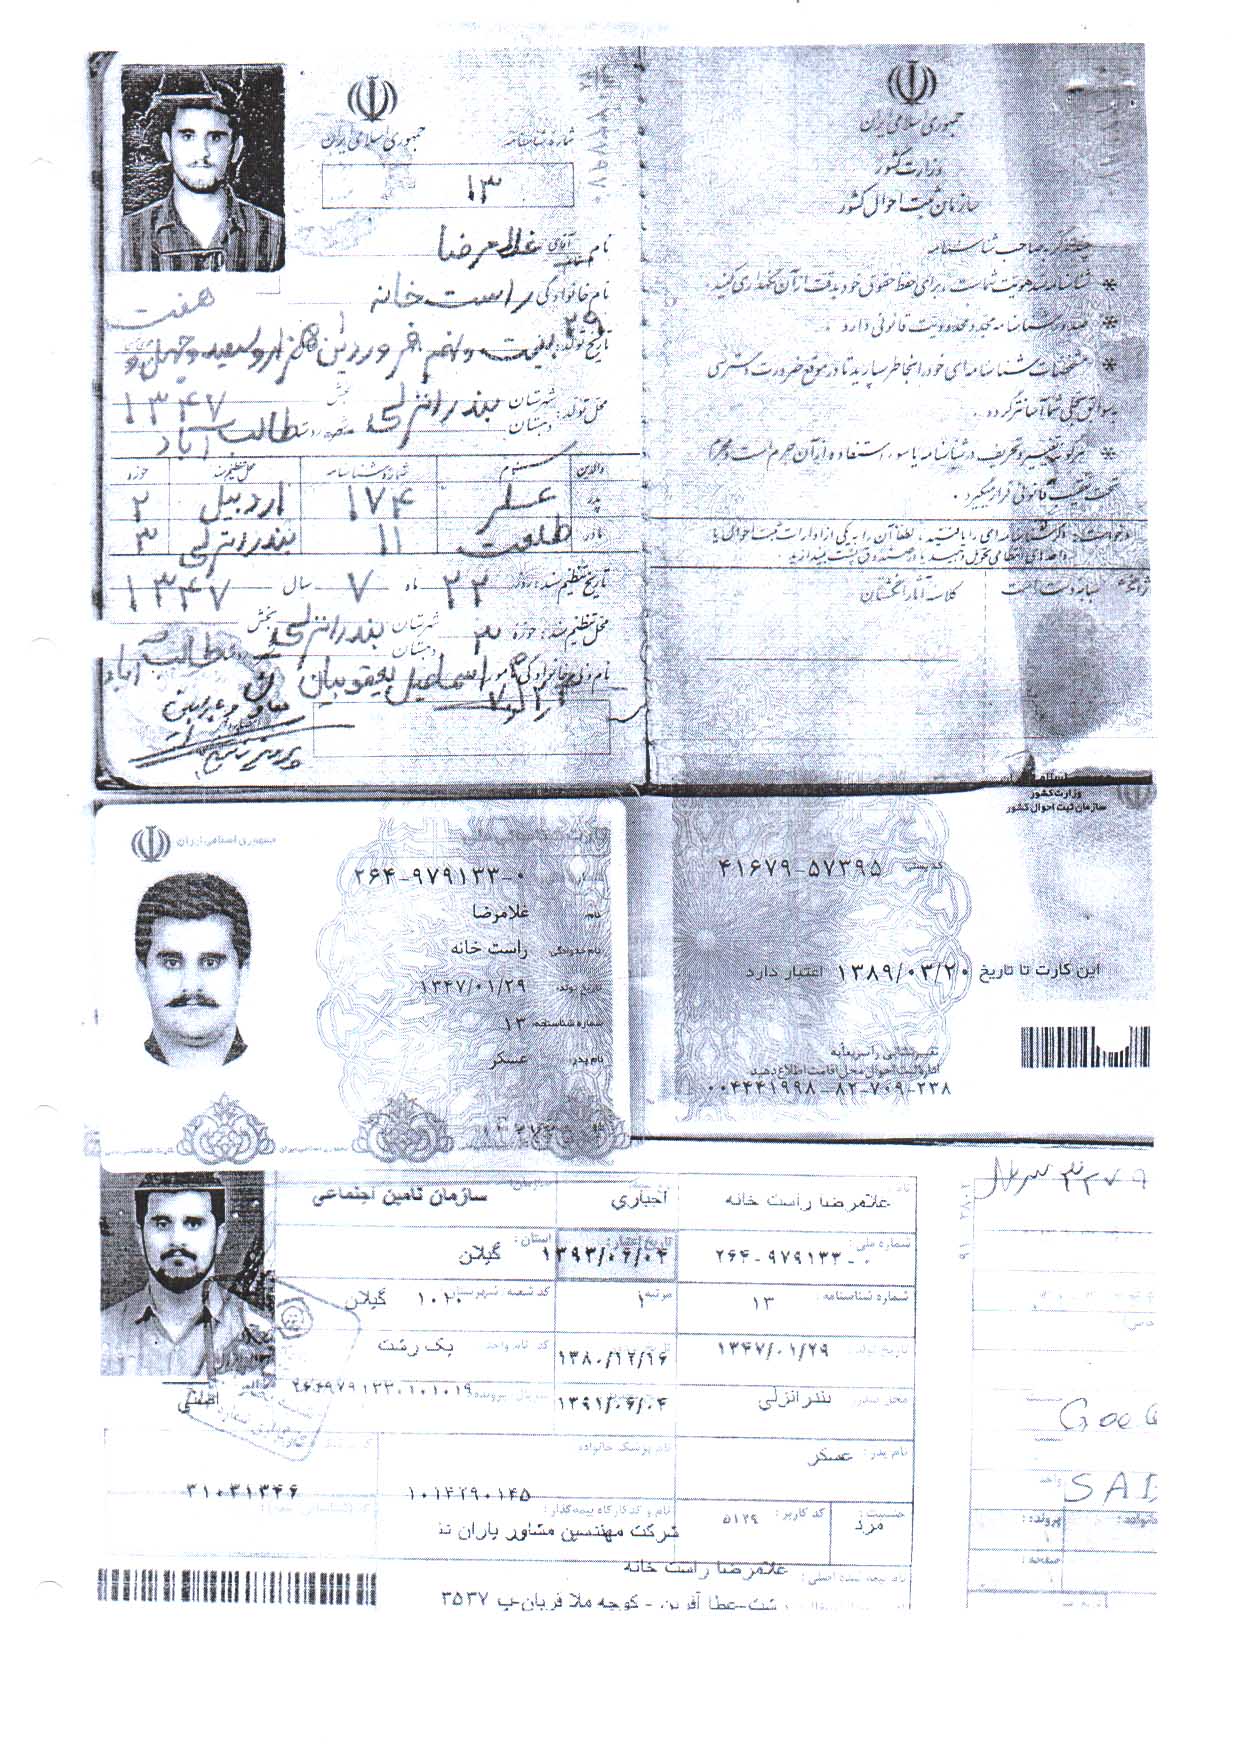 جمهوری اسلامی ایران
شماره شناسنامه
۱۳
نام آقای غلامرضا
نام خانوادگی راست خانه
هفت
تاریخ تولد: ۲۹ بیست و نهم فروردین ۱ هزار و سیصد و چهل و
۱۳۴۷
محل تولد: شهرستان بندرانزلی بخش
دهستان طالب آباد
والدین نام شماره شناسنامه محل تنظیم سند حوزه
پدر عسکر ۱۷۴ اردبیل ۲
مادر طلعت ۱۱ بندرانزلی ۳
تاریخ تنظیم سند: روز ۲۲ ماه ۷ سال ۱۳۴۷
محل تنظیم سند: حوزه ۳ شهرستان بندرانزلی بخش
دهستان طالب آباد
نام و نام خانوادگی مامور اسماعیل یعقوبیان
جمهوری اسلامی ایران
وزارت کشور
سازمان ثبت احوال کشور
چند تذکر به صاحب شناسنامه
* شناسنامه سند هویت شماست، برای حفظ حقوق خود بدقت از آن نگهداری کنید.
* صدور شناسنامه مجدد محدودیت قانونی دارد.
* مشخصات شناسنامه ای خود را بخاطر بسپارید تا در موقع ضرورت دسترسی
به سوابق سجلی شما آسانتر گردد.
* هرگونه تغییر و تحریف در شناسنامه یا سوء استفاده از آن جرم است و مجرم
تحت تعقیب قانونی قرار میگیرد.
درخواست: اگر شناسنامه ای را یافتید، لطفاً آن را به یکی از ادارات ثبت احوال یا
واحدهای انتظامی تحویل دهید یا در صندوق پست بیندازید.
سبابه دست راست
کلاسه آثار انگشتان
جمهوری اسلامی ایران
۲۶۴-۹۷۹۱۳۳-۰
نام: غلامرضا
نام خانوادگی: راست خانه
تاریخ تولد: ۱۳۴۷/۰۱/۲۹
شماره شناسنامه: ۱۳
نام پدر: عسکر
وزارت کشور
سازمان ثبت احوال کشور
کد پستی: ۴۱۶۷۹-۵۷۳۹۵
این کارت تا تاریخ ۱۳۸۹/۰۳/۲۰ اعتبار دارد
تغییر نشانی را سریعاً به
اداره ثبت احوال محل اقامت اطلاع دهید
۰۰۴۴۴۱۹۹۸-۸۲-۷۰۹-۲۳۸
نام غلامرضا راست خانه
اجباری
سازمان تامین اجتماعی
شماره ملی: ۲۶۴-۹۷۹۱۳۳-۰
تاریخ اعتبار: ۱۳۹۳/۰۶/۰۴
استان: گیلان
شماره شناسنامه: ۱۳
مرتبه ۱
کد شعبه: ۱۰۲۰ گیلان
تاریخ تولد: ۱۳۴۷/۰۱/۲۹
۱۳۸۰/۱۲/۱۶
کد نام واحد یک رشت
محل صدور: بندر انزلی
۱۳۹۱/۰۶/۰۴
سریال پرونده: ۲۶۴۹۷۹۱۳۳۰۱۰۱۰۱۹
اصلی
نام پدر: عسکر
نام پزشک خانواده
۱۰۱۴۲۹۰۱۴۵
۳۱۰۳۱۳۴۶
جنسیت: مرد
کد کاربر: ۵۱۲۹
نام و کد کارگاه بیمه گذار:
شرکت مهندسین مشاور یاران
نام بیمه شده اصلی: غلامرضا راست خانه
رشت-عطا آفرین - کوچه ملا قربان-پ ۳۵۳۷
پرونده:
صفحه: